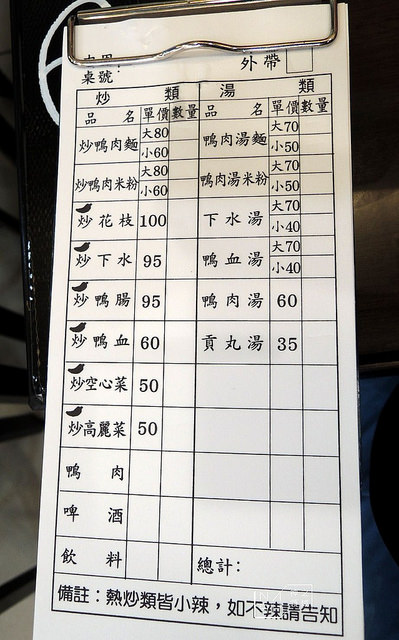 內用
桌號:
外帶
炒類 湯類
品名 單價 數量 品名 單價 數量
炒鴨肉麵 大80 小60 鴨肉湯麵 大70 小50
炒鴨肉米粉 大80 小60 鴨肉湯米粉 大70 小50
炒花枝 100 下水湯 大70 小40
炒下水 95 鴨血湯 大70 小40
炒鴨腸 95 鴨肉湯 60
炒鴨血 60 貢丸湯 35
炒空心菜 50
炒高麗菜 50
鴨肉
啤酒
飲料 總計:
備註:熱炒類皆小辣,如不辣請告知